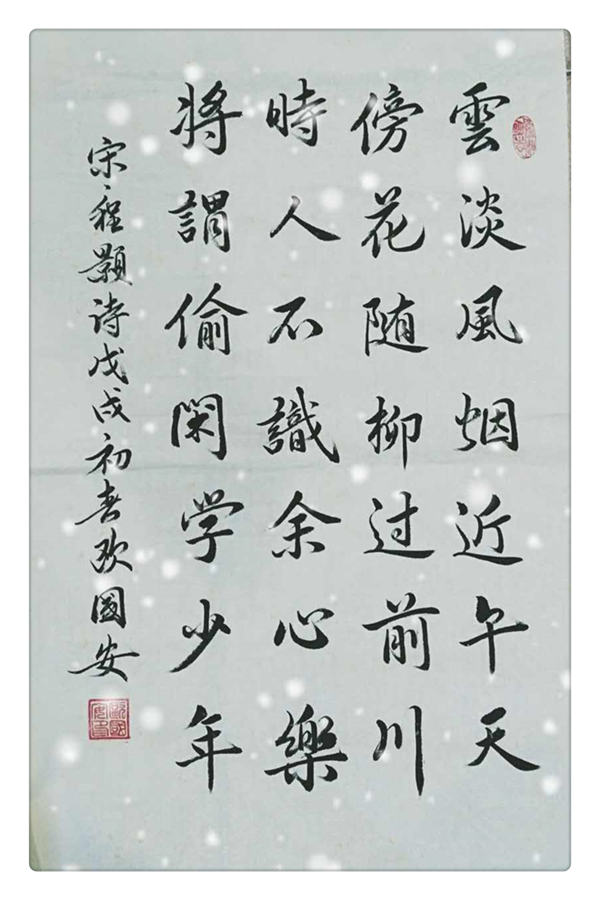 雲淡風烟近午天
傍花随柳过前川
時人不識余心樂
將謂偷闲学少年
宋程颢诗戊戌初春欧國安